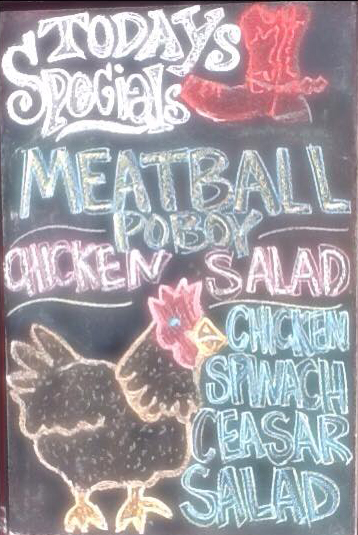 TODAYS
SPOCials
MEATBALL
POBOY
CHICKEN SALAD
CHICKEN
SPINACH
CEASAR
SALAD